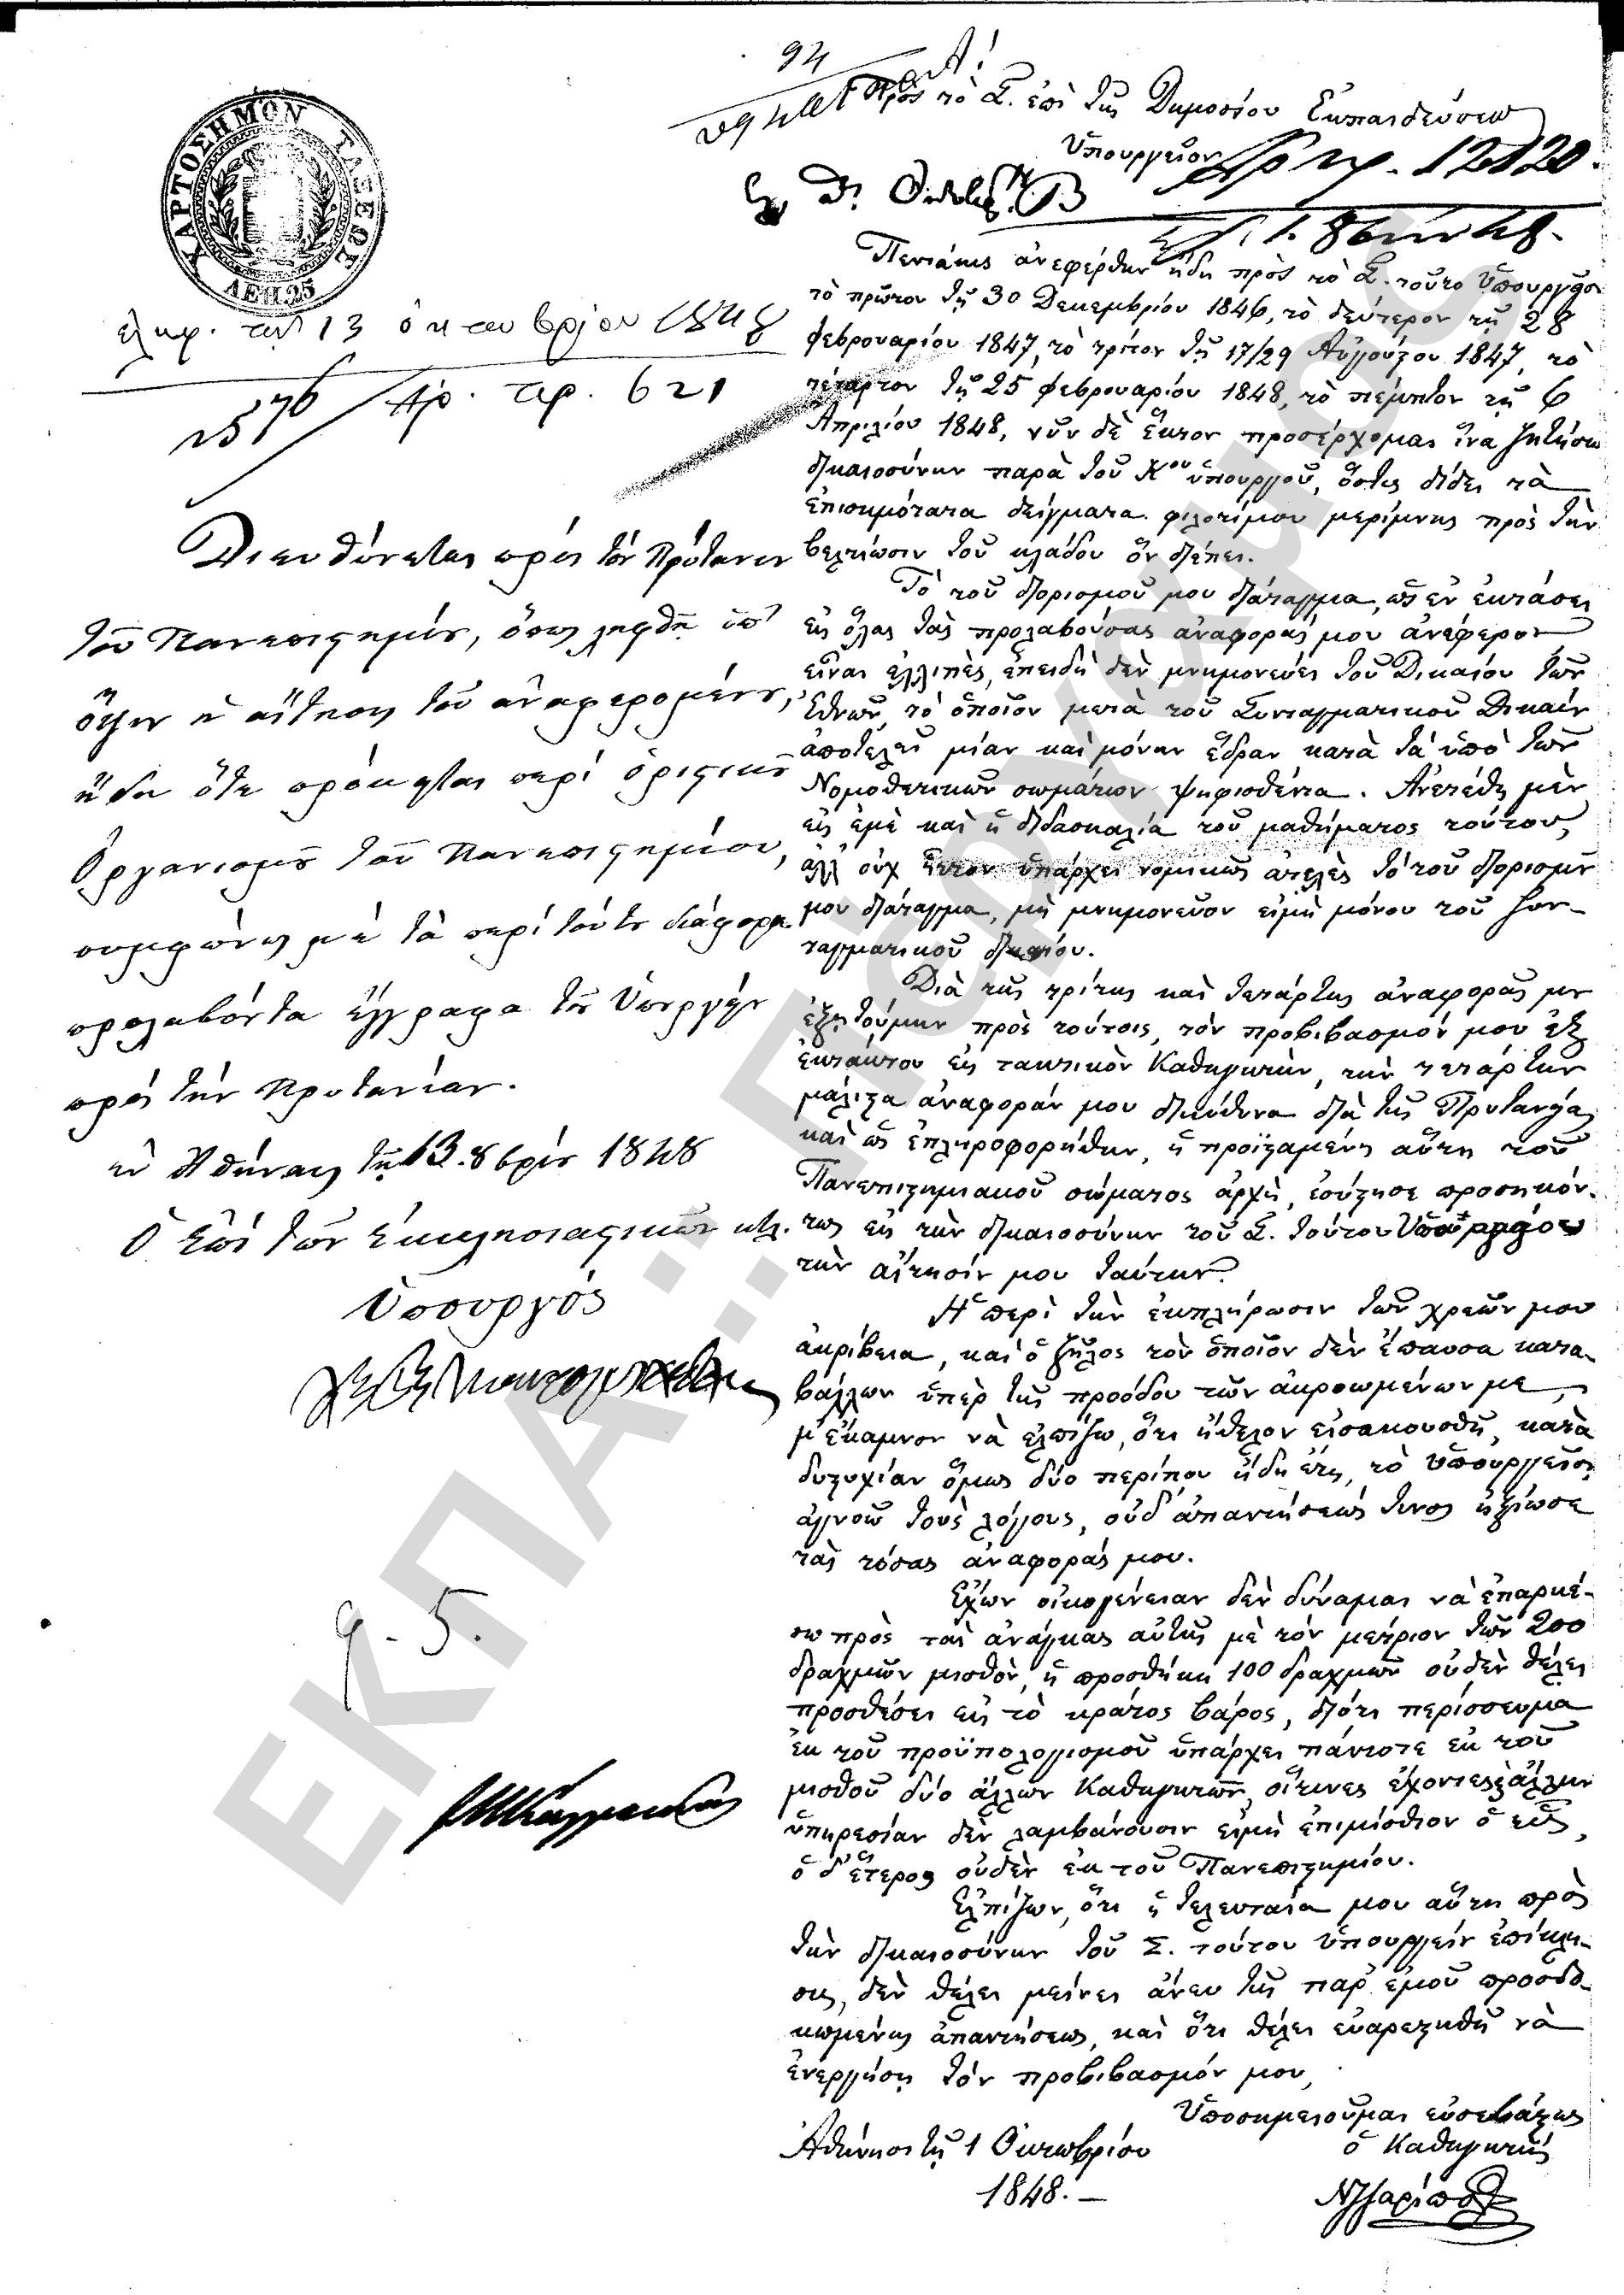 94
Α!
Πρὸς τὸ Σ. ἐπὶ τῆς Δημοσίου Ἐκπαιδεύσεως
Ὑπουργεῖον
Ἀρ πρ. 12120.
ΧΑΡΤΟΣΗΜΟΝ ΤΑΞΕΩΣ
ΛΕΠ.25
ἐλήφ. τὴν 13 ὀκτωβρίου 1848
Ἀρ. πρ. 621
Διευθύνεται πρὸς τὸν Πρύτανιν
τοῦ Πανεπιστημίου, ὅπως ληφθῇ ὑπ'
ὄψιν ἡ αἴτησις τοῦ ἀναφερομένου,
ἤδη ὅτε πρόκηται περὶ ὁριστικοῦ
Ὀργανισμοῦ τοῦ Πανεπιστημίου,
συμφώνως μὲ τὰ περὶ τούτου διάφορα
προλαβόντα ἔγγραφα τοῦ Ὑπουργείου
πρὸς τὴν Πρυτανείαν.
ἐν Ἀθήναις τῇ 13. 8βρίου 1848
Ὁ ἐπὶ τῶν Ἐκκλησιαστικῶν κτλ.
Ὑπουργός
9-5.
Πεντάκις ἀνεφέρθην ἤδη πρὸς τὸ Σ. τοῦτο Ὑπουργεῖον
τὸ πρῶτον τῇ 30 Δεκεμβρίου 1846, τὸ δεύτερον τῇ 28
φεβρουαρίου 1847, τὸ τρίτον τῇ 17/29 Αὐγούστου 1847, τὸ
τέταρτον τῇ 25 φεβρουαρίου 1848, τὸ πέμπτον τῇ 6
Ἀπριλίου 1848, νῦν δὲ ἕκτον προσέρχομαι ἵνα ζητήσω
δικαιοσύνην παρὰ τοῦ Κου ὑπουργοῦ, ὅστις δίδει τὰ
ἐπισημότατα δείγματα φιλοτίμου μερίμνης πρὸς τὴν
βελτίωσιν τοῦ κλάδου ὃν διέπει.
Τὸ τοῦ διορισμοῦ μου διάταγμα, ὡς ἐν ἐκτάσει
εἰς ὅλας τὰς προλαβούσας ἀναφοράς μου ἀνέφερον
εἶναι ἐλλιπὲς, ἐπειδὴ δὲν μνημονεύει τοῦ Δικαίου τῶν
Ἐθνῶν, τὸ ὁποῖον μετὰ τοῦ Συνταγματικοῦ Δικαίου
ἀποτελεῖ μίαν καὶ μόνην ἕδραν κατὰ τὰ ὑπὸ τῶν
Νομοθετικῶν σωμάτων ψηφισθέντα. Ἀνετέθη μὲν
εἰς ἐμὲ καὶ ἡ διδασκαλία τοῦ μαθήματος τούτου,
ἀλλ' οὐχ ἧττον ὑπάρχει νομικῶς ἀτελὲς τὸ τοῦ διορισμοῦ
μου διάταγμα, μὴ μνημονεῦον εἰμὴ μόνου τοῦ Συν-
ταγματικοῦ δικαίου.
Διὰ τῆς τρίτης καὶ τετάρτης ἀναφορᾶς μου
ἐξῃτούμην πρὸς τούτοις, τὸν προβιβασμόν μου ἐξ
ἐκτάκτου εἰς τακτικὸν Καθηγητὴν, τὴν τετάρτην
μάλιστα ἀναφοράν μου διεύθυνα διὰ τῆς Πρυτανείας,
καὶ ὡς ἐπληροφορήθην, ἡ προϊσταμένη αὕτη τοῦ
Πανεπιστημιακοῦ σώματος ἀρχὴ, ἐσύστησε προσηκόν-
τως εἰς τὴν δικαιοσύνην τοῦ Σ. τούτου Ὑπουργείου
τὴν αἴτησίν μου ταύτην.
Ἡ περὶ τὴν ἐκπλήρωσιν τῶν χρεῶν μου
ἀκρίβεια, καὶ ὁ ζῆλος τὸν ὁποῖον δὲν ἔπαυσα κατα-
βάλλων ὑπὲρ τῆς προόδου τῶν ἀκροωμένων με,
μ' ἔκαμνον νὰ ἐλπίζω, ὅτι ἤθελον εἰσακουσθῆ, κατὰ
δυστυχίαν ὅμως δύο περίπου ἤδη ἔτη, τὸ ὑπουργεῖον,
ἀγνοῶ τοὺς λόγους, οὐδ' ἀπαντήσεώς τινος ἠξίωσε
τὰς τόσας ἀναφοράς μου.
Ἔχων οἰκογένειαν δὲν δύναμαι νὰ ἐπαρκέ-
σω πρὸς τὰς ἀνάγκας αὐτῆς μὲ τὸν μέτριον τῶν 200
δραχμῶν μισθὸν, ἡ προσθήκη 100 δραχμῶν οὐδὲν θέλει
προσθέσει εἰς τὸ κράτος βάρος, διότι περίσσευμα
ἐκ τοῦ προϋπολογισμοῦ ὑπάρχει πάντοτε ἐκ τοῦ
μισθοῦ δύο ἄλλων Καθηγητῶν, οἵτινες ἔχοντες ἄλλην
ὑπηρεσίαν δὲν λαμβάνουσιν εἰμὴ ἐπιμίσθιον ὁ εἷς,
ὁ δ' ἕτερος οὐδὲν ἐκ τοῦ Πανεπιστημίου.
Ἐλπίζων, ὅτι ἡ τελευταία μου αὕτη πρὸς
τὴν δικαιοσύνην τοῦ Σ. τούτου Ὑπουργείου ἐπίκλη-
σις, δὲν θέλει μείνει ἄνευ τῆς παρ' ἐμοῦ προσδο-
κωμένης ἀπαντήσεως, καὶ ὅτι θέλει εὐαρεστηθῆ νὰ
ἐνεργήσῃ τὸν προβιβασμόν μου,
Ὑποσημειοῦμαι εὐσεβάστως
ὁ Καθηγητὴς
Ἀθήνησι τῇ 1 Ὀκτωβρίου
1848.—
ΕΚΠΑ::Πέργαμος